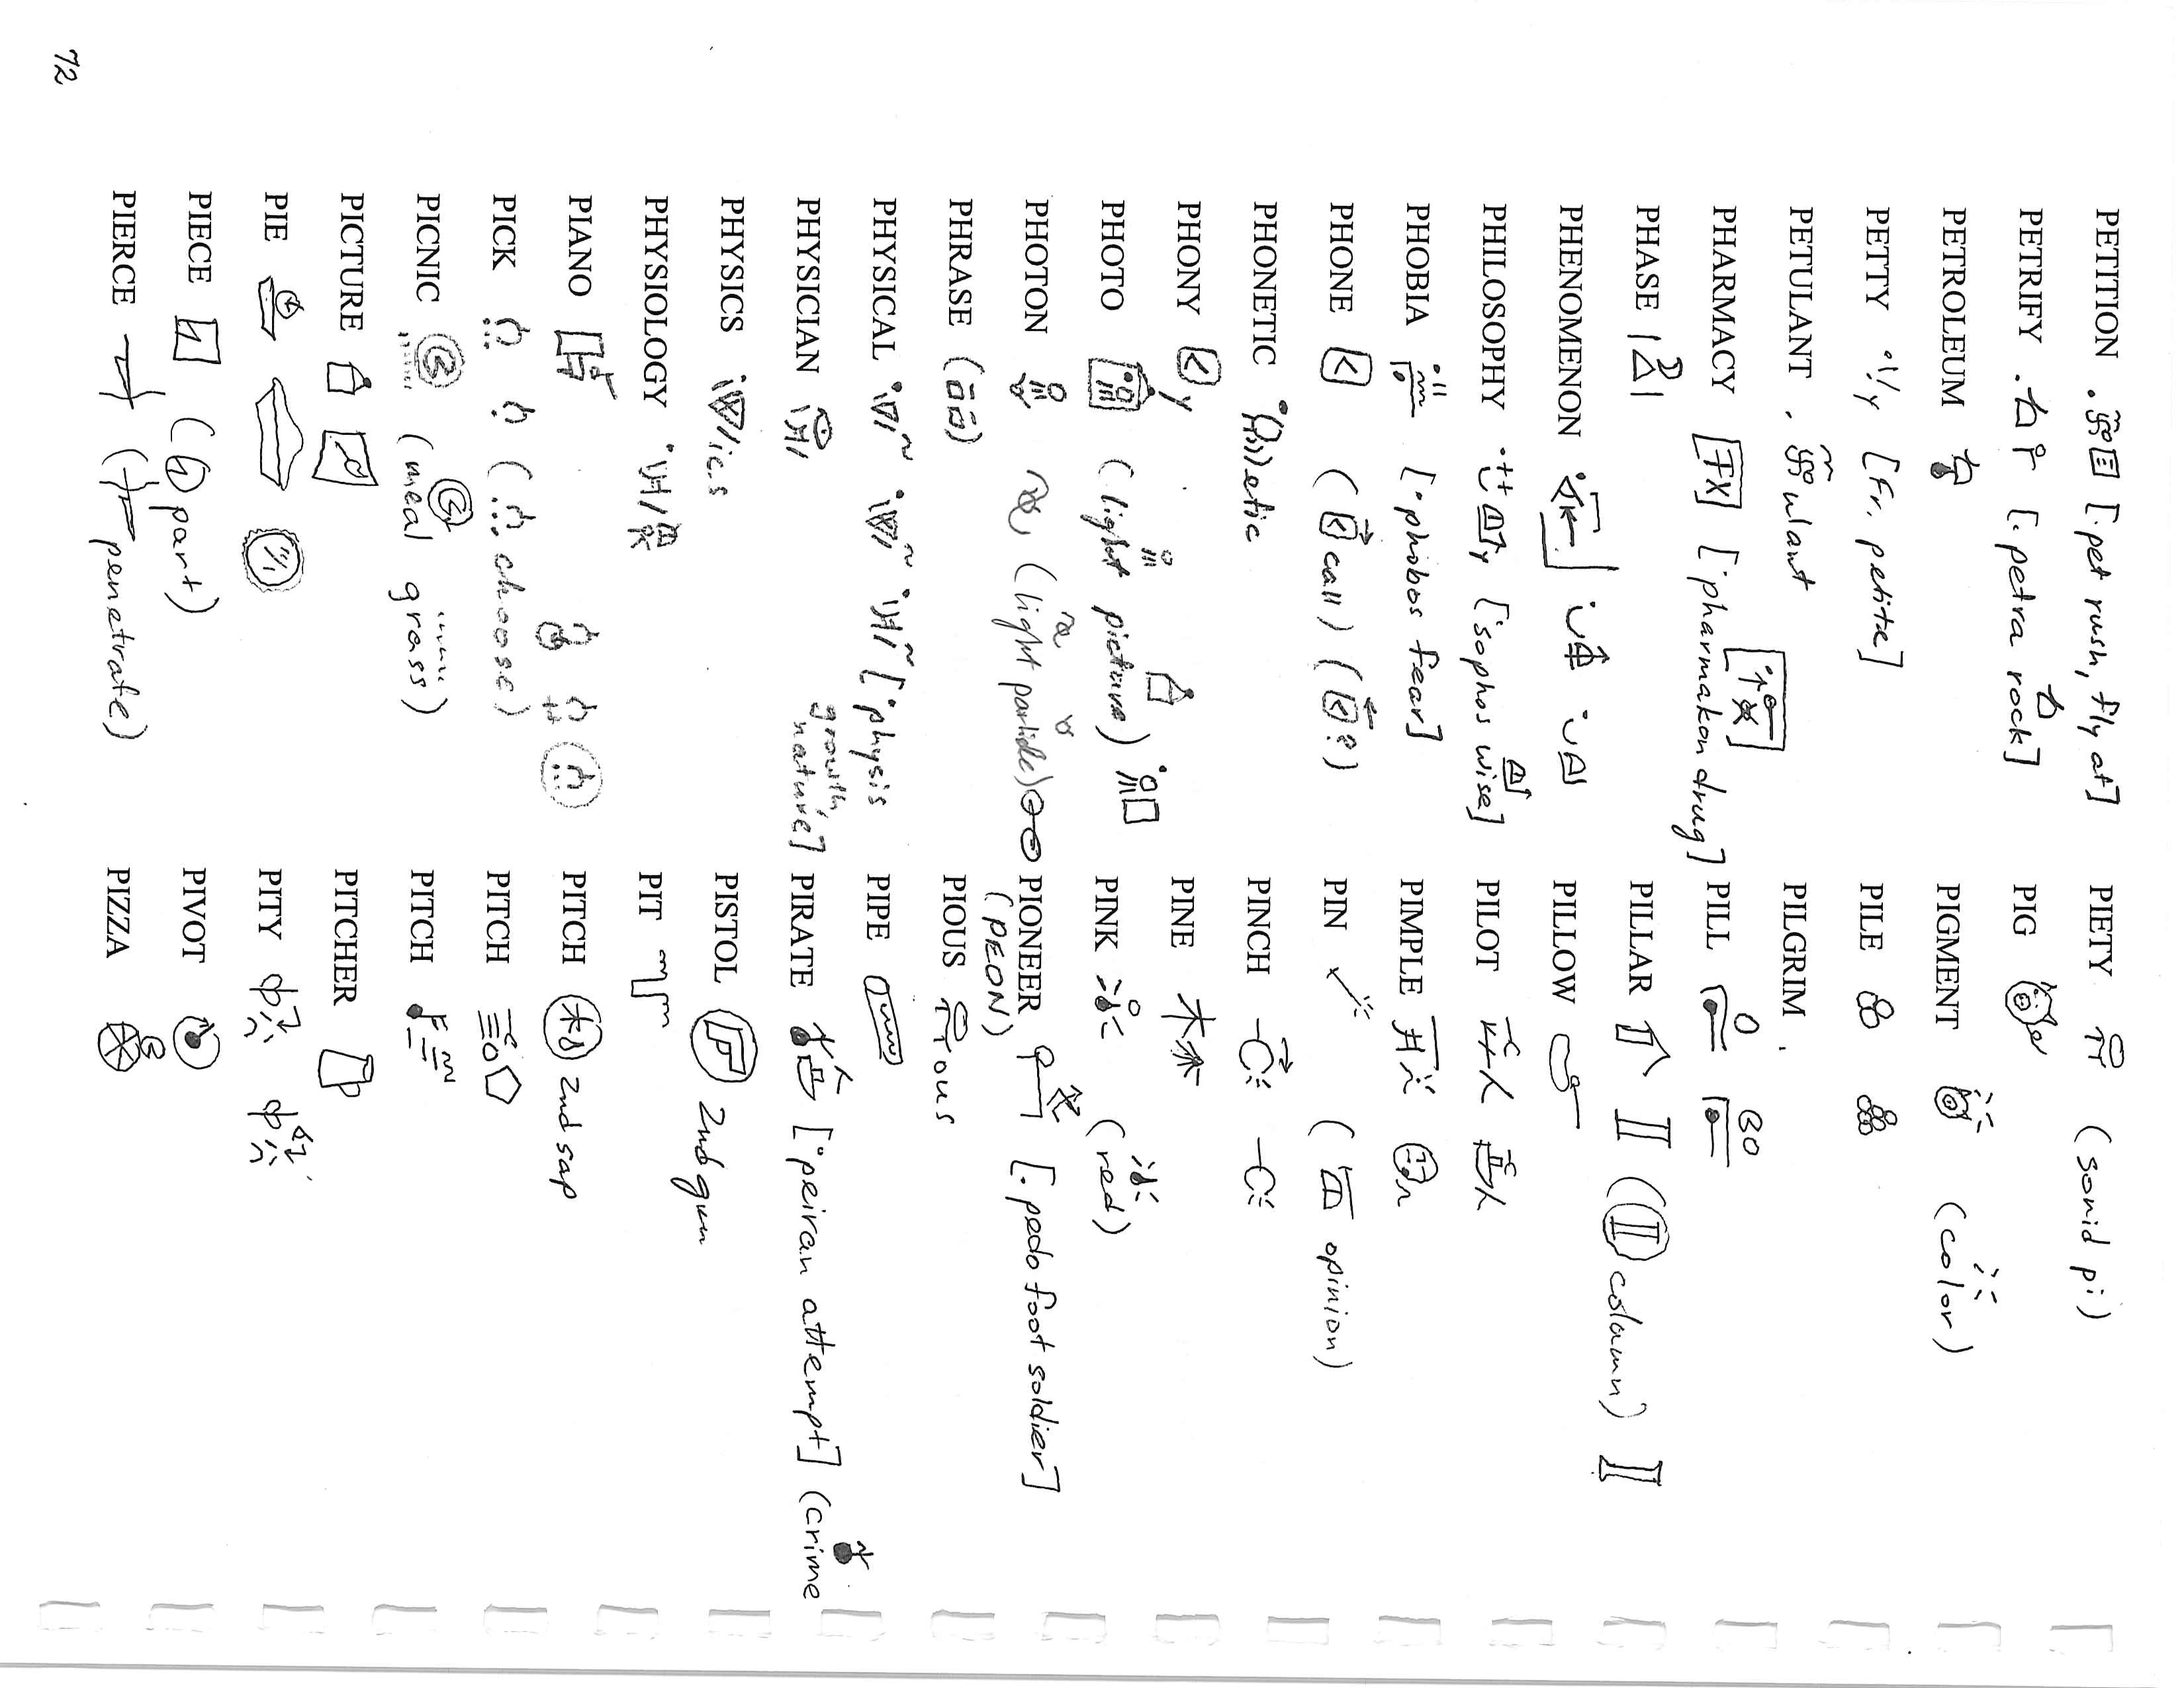 PETITION [·pet rush, fly at]
PETRIFY [·petra rock]
PETROLEUM
PETTY y [Fr. petite]
PETULANT ulant
PHARMACY [·pharmakon drug]
PHASE
PHENOMENON
PHILOSOPHY y [·sophos wise]
PHOBIA [·phobos fear]
PHONE ( call) ( ?)
PHONETIC etic
PHONY y
PHOTO (light picture)
PHOTON (light particle)
PHRASE
PHYSICAL [·physis growth, nature]
PHYSICIAN
PHYSICS ics
PHYSIOLOGY
PIANO
PICK ( choose)
PICNIC (meal grass)
PICTURE
PIE
PIECE ( part)
PIERCE ( penetrate)
PIETY (sonid pi)
PIG
PIGMENT (color)
PILE
PILGRIM
PILL
PILLAR ( column)
PILLOW
PILOT
PIMPLE
PIN ( opinion)
PINCH
PINE
PINK (red)
PIONEER [·pedo foot soldier]
(PEON)
PIOUS ous
PIPE
PIRATE [·peiran attempt] (crime
PISTOL 2nd gun
PIT
PITCH 2nd sap
PITCH
PITCH
PITCHER
PITY
PIVOT
PIZZA
72